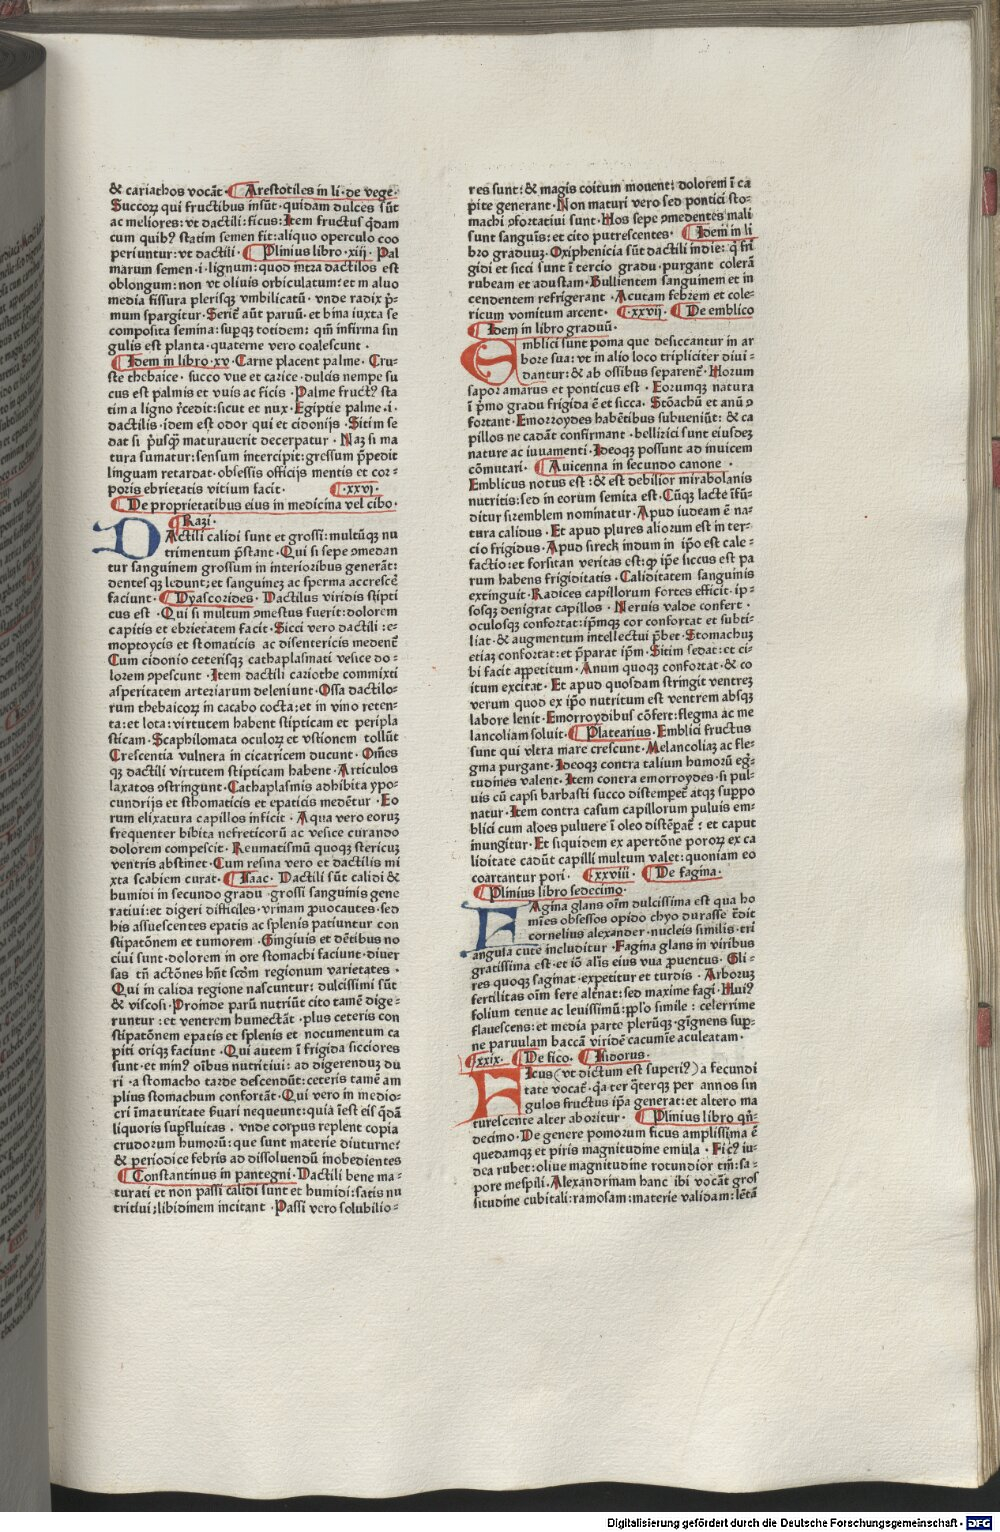 & cariathos vocāt · Arestotiles in li · de vege ·
Succorꝝ qui fructibus insūt · quidam dulces sūt
ac meliores : vt dactili : ficus : Item fructus q̄dam
cum quibꝰ statim semen fit : aliquo operculo coo
periuntur : vt dactili · Plinius libro · xiij · Pal
marum semen · i · lignum : quod īntra dactilos est
oblongum : non vt oliuis orbiculatum : et in aluo
media fissura plerisqꝫ vmbilicatū · vnde radix p̄-
mum spargitur · Serit̄ aūt paruū · et bina iuxta se
composita semina : supqꝫ totidem : qm̄ infirma sin
gulis est planta · quaterne vero coalescunt ·
Idem in libro · xv · Carne placent palme · Cru-
ste thebaice · succo vue et carice · dulcis nempe su
cus est palmis et vuis ac ficis · Palme fructꝰ sta
tim a ligno r̄cedit : sicut et nux · Egiptie palme · i ·
dactilis · idem est odor qui et cidonijs · Sitim se
dat si p̄usqꝫ maturauerit decerpatur · Naꝫ si ma
tura sumatur : sensum intercipit : gressum p̄pedit
linguam retardat · obsessis officijs mentis et cor-
poris ebrietatis vitium facit · xxvi ·
De proprietatibus eius in medicina vel cibo ·
Razi ·
DActili calidi sunt et grossi : multūqꝫ nu
trimentum p̄stant · Qui si sepe ꝯmedan
tur sanguinem grossum in interioribus generāt :
dentesqꝫ ledunt : et sanguineꝫ ac sperma accrescē
faciunt · Dyascorides · Dactilus viridis stipti
cus est · Qui si multum ꝯmestus fuerit : dolorem
capitis et ebrietatem facit · Sicci vero dactili : e-
moptoycis et stomaticis ac disentericis medent̄
Cum cidonio ceterisqꝫ cathaplasmati vesice do-
lorem ꝯpescunt · Item dactili cariothe commixti
asperitatem arteriarum deleniunt · Ossa dactilo-
rum thebaicorꝫ in cacabo cocta : et in vino reten-
ta : et lota : virtutem habent stipticam et peripla
sticam · Scaphilomata oculorꝫ et vstionem tollūt
Crescentia vulnera in cicatricem ducunt · Om̄es
qꝫ dactili virtutem stipticam habent · Articulos
laxatos ꝯstringunt · Cathaplasmis adhibita ypo-
cundrijs et sthomaticis et epaticis medētur · Eo
rum elixatura capillos inficit · Aqua vero eoruꝫ
frequenter bibita nefreticorū ac vesice curando
dolorem compescit · Reumatismū quoqꝫ stericuꝫ
ventris abstinet · Cum resina vero et dactilis mi
xta scabiem curat · Isaac · Dactili sūt calidi &
humidi in secundo gradu · grossi sanguinis gene
ratiui : et digeri difficiles · vrinam ꝓuocantes · sed
his assuescentes epatis ac splenis patiuntur con
stipatōnem et tumorem · Gingiuis et dētibus no
ciui sunt · dolorem in ore stomachi faciunt · diuer
sas tn̄ actōnes hn̄t scd̄m regionum varietates ·
Qui in calida regione nascuntur : dulcissimi sūt
& viscosi · Proinde parū nutriūt cito tamē dige-
runtur : et ventrem humectāt · plus ceteris con
stipatōnem epatis et splenis et nocumentum ca
piti oriqꝫ faciunt · Qui autem ī frigida sicciores
sunt · et minꝰ oībus nutritiui : ad digerenduꝫ du
ri · a stomacho tarde descendūt : ceteris tamē am
plius stomachum confortāt · Qui vero in medio-
cri īmaturitate s̄uari nequeunt : quia īest eis q̄dā
liquoris supfluitas · vnde corpus replent copia
crudorum humorū : que sunt materie diuturneꝰ
& periodice febris ad dissoluendū inobedientes
Constantinus in pantegni · Dactili bene ma-
turati et non passi calidi sunt et humidi : satis nu
tritiui ; libidinem incitant · Passi vero solubilio-
res sunt : & magis coitum mouent : dolorem ī ca
pite generant · Non maturi vero sed pontici sto-
machi ꝯfortatiui sunt · Hos sepe ꝯmedentes mali
sunt sanguīs : et cito putrescentes · Idem in li
bro graduuꝫ · Oxiphenicia sūt dactili indie : q̄ fri
gidi et sicci sunt ī tercio gradu · purgant colerā
rubeam et adustam · Bullientem sanguinem et in
cendentem refrigerant · Acutam febrem et cole-
ricum vomitum arcent · xxvij · De emblico
Idem in libro graduū ·
EMblici sunt poma que desiccantur in ar
bore sua : vt in alio loco tripliciter diui-
dantur : & ab ossibus separent̄ · Horum
sapor amarus et ponticus est · Eorumqꝫ natura
ī p̄mo gradu frigida ē et sicca · Stōachū et anū ꝯ
fortant · Emorroydes habētibus subueniūt : & ca
pillos ne cadāt confirmant · bellirici sunt eiusdeꝫ
nature ac iuuamenti · Ideoqꝫ possunt ad inuicem
cōmutari · Auicenna in secundo canone ·
Emblicus notus est : & est debilior mirabolanis
nutritis : sed in eorum semita est · Cūqꝫ lacte īfū-
ditur siremblem nominatur · Apud iudeam ē na-
tura calidus · Et apud plures aliorum est in ter-
cio frigidus · Apud sireck indum in ip̄o est cale-
factio : et forsitan veritas est : qꝫ ip̄e siccus est pa
rum habens frigiditatis · Caliditatem sanguinis
extinguit · Radices capillorum fortes efficit · ip-
sosqꝫ denigrat capillos · Neruis valde confert ·
oculosqꝫ confortat : ip̄mqꝫ cor confortat et subti-
liat · & augmentum intellectui p̄bet · Stomachuꝫ
etiaꝫ confortat : et p̄parat ip̄m · Sitim sedat : et ci-
bi facit appetitum · Anum quoqꝫ confortat · & co
itum excitat · Et apud quosdam stringit ventreꝫ
verum quod ex ip̄o nutritum est ventrem absqꝫ
labore lenit · Emorroydibus cōfert : flegma ac me
lancoliam soluit · Platearius · Emblici fructus
sunt qui vltra mare crescunt · Melancoliaꝫ ac fle-
gma purgant · Ideoqꝫ contra talium humorū eḡ-
tudines valent · Item contra emorroydes · si pul-
uis cū capsi barbasti succo distempet̄ atqꝫ suppo
natur · Item contra casum capillorum puluis em-
blici cum aloes puluere ī oleo distēpat̄ : et caput
inungitur · Et siquidem ex apertōne pororꝫ ex ca
liditate cadūt capilli multum valet : quoniam eo
coartantur pori · xxviii · De fagina ·
Plinius libro sedecimo ·
FAgina glans oīm dulcissima est qua ho
mīes obsessos opido chyo durasse t̄dit
cornelius alexander · nucleis similis · tri
angula cute includitur · Fagina glans in viribus
gratissima est · et iō alijs eius vua ꝓuentus · Gli-
res quoqꝫ saginat · expetitur et turdis · Arboruꝫ
fertilitas oīm fere alt̄nat : sed maxime fagi · Huiꝰ
folium tenue ac leuissimū : pplo simile : celerrime
flauescens : et media parte plerūqꝫ · gīgnens sup-
ne paruulam baccā viridē cacumīe aculeatam ·
xxix · De fico · Isidorus ·
FIcus (vt dictum est superiꝰ) a fecundi
tate vocat̄ · q̄a ter q̄terqꝫ per annos sin
gulos fructus ip̄a generat : et altero ma
turescente alter aboritur · Plinius libro qn̄-
decimo · De genere pomorum ficus amplissima ē
quedamqꝫ et piris magnitudine emula · Ficꝰ iu-
dea rubet : oliue magnitudine rotundior tm̄ : sa-
pore mespili · Alexandrinam hanc ibi vocāt gros
situdine cubitali : ramosam : materie validam : lētā
Digitalisierung gefördert durch die Deutsche Forschungsgemeinschaft · DFG